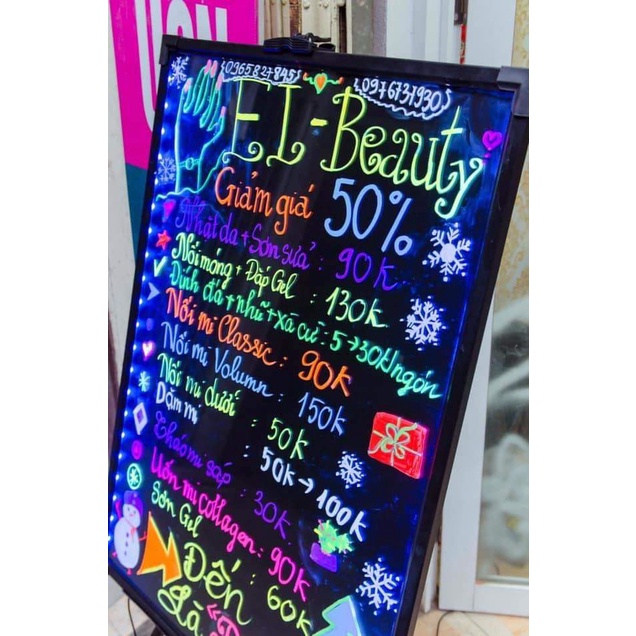 0965827845
0976731930
EI-Beauty
Giảm giá 50%
Nhặt da + Sơn sửa : 90k
Nối móng + Đắp Gel : 130k
Đính đá + nhũ + xà cừ : 5 → 30k/ngón
Nối mi Classic : 90k
Nối mi Volumn : 150k
Nối mi dưới : 50k
Dặm mi : 50k → 100k
Tháo mi gấp : 30k
Uốn mi collagen : 90k
Sơn Gel : 60k
Đến
Là